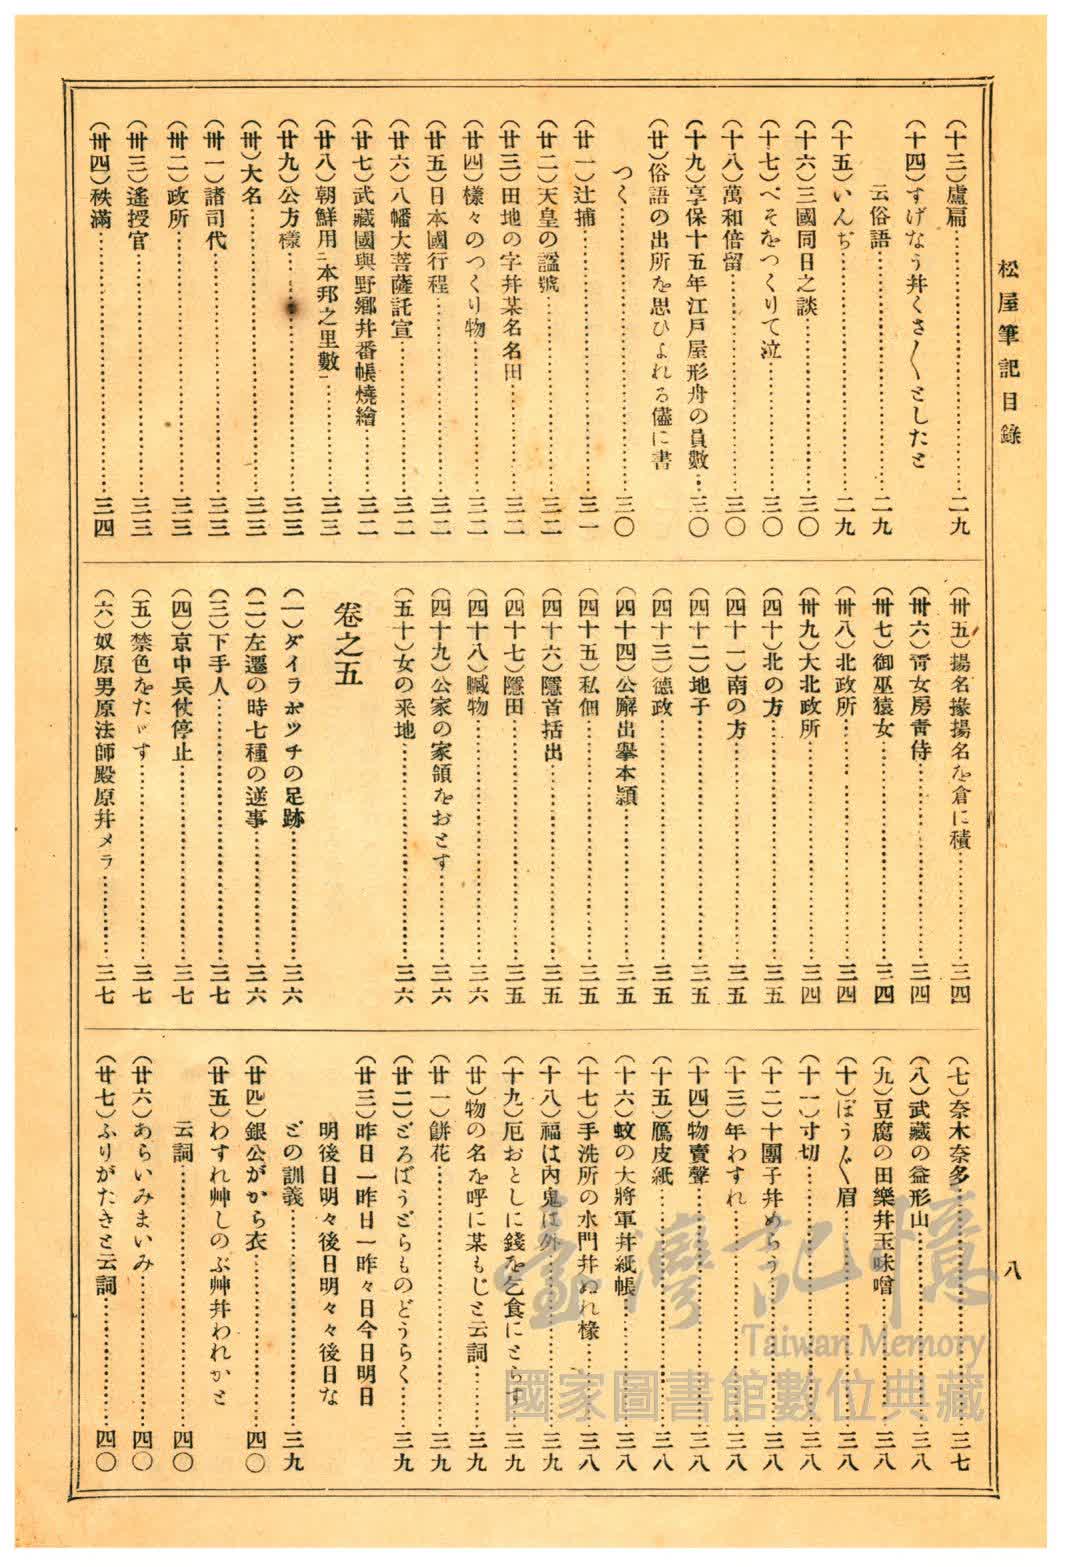 松屋筆記目錄
八
(十三)盧扁………二九
(十四)すげなう幷くさ〱としたと
云俗語………二九
(十五)いんぢ………二九
(十六)三國同日之談………三〇
(十七)べそをつくりて泣………三〇
(十八)萬和倍留………三〇
(十九)享保十五年江戸屋形舟の員數…三〇
(廿)俗語の出所を思ひよれる儘に書
つく………三〇
(廿一)辻捕………三一
(廿二)天皇の謚號………三二
(廿三)田地の字幷某名名田………三二
(廿四)樣々のつくり物………三二
(廿五)日本國行程………三二
(廿六)八幡大菩薩託宣………三二
(廿七)武藏國與野鄕幷番帳燒繪………三二
(廿八)朝鮮用ニ本邦之里數一………三三
(廿九)公方樣………三三
(卅)大名………三三
(卅一)諸司代………三三
(卅二)政所………三三
(卅三)遙授官………三三
(卅四)秩滿………三四
(卅五)揚名掾揚名を倉に積………三四
(卅六)靑女房靑侍………三四
(卅七)御巫猿女………三四
(卅八)北政所………三四
(卅九)大北政所………三四
(四十)北の方………三五
(四十一)南の方………三五
(四十二)地子………三五
(四十三)德政………三五
(四十四)公廨出擧本穎………三五
(四十五)私佃………三五
(四十六)隱首括出………三五
(四十七)隱田………三五
(四十八)贓物………三六
(四十九)公家の家領をおとす………三六
(五十)女の釆地………三六
卷之五
(一)ダイラボツチの足跡………三六
(二)左遷の時七種の逆事………三六
(三)下手人………三七
(四)京中兵仗停止………三七
(五)禁色をたゞす………三七
(六)奴原男原法師殿原幷メラ………三七
(七)奈木奈多………三七
(八)武藏の益形山………三八
(九)豆腐の田樂幷玉味噌………三八
(十)ぼう〱眉………三八
(十一)寸切………三八
(十二)十團子幷めらう………三八
(十三)年わすれ………三八
(十四)物賣聲………三八
(十五)鴈皮紙………三八
(十六)蚊の大將軍幷紙帳………三八
(十七)手洗所の水門幷ぬれ椽………三八
(十八)福は內鬼は外………三九
(十九)厄おとしに錢を乞食にとらす…三九
(廿)物の名を呼に某もじと云詞………三九
(廿一)餠花………三九
(廿二)どろばうどらものどうらく………三九
(廿三)昨日一昨日一昨々日今日明日
明後日明々後日明々々後日な
どの訓義………三九
(廿四)銀公がから衣………四〇
(廿五)わすれ艸しのぶ艸幷われかと
云詞………四〇
(廿六)あらいみまいみ………四〇
(廿七)ふりがたきと云詞………四〇
臺灣記憶
Taiwan Memory
國家圖書館數位典藏